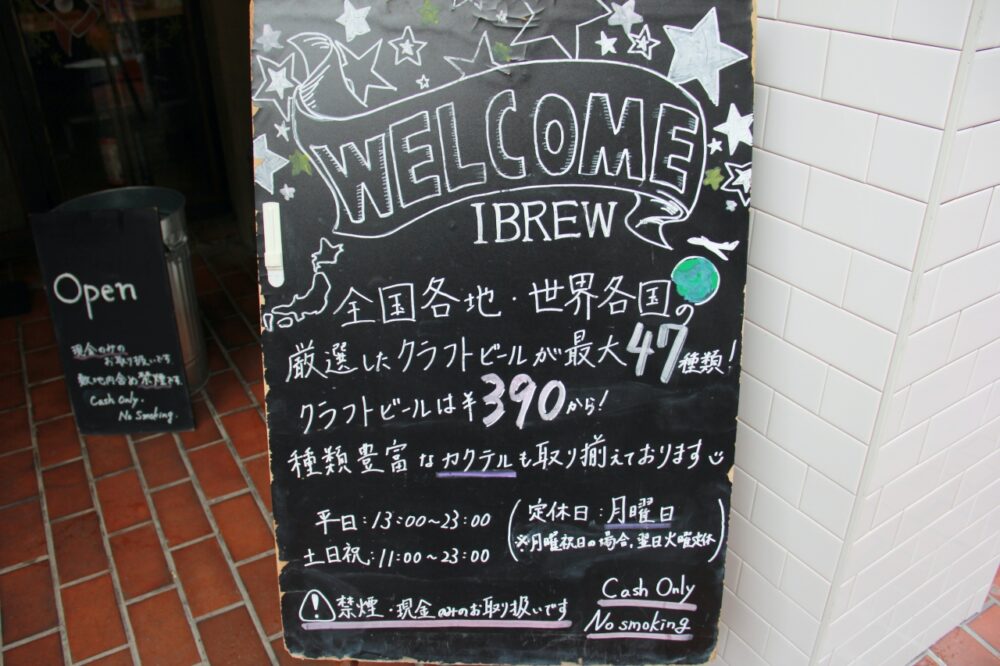 WELCOME
IBREW
全国各地・世界各国の
厳選したクラフトビールが最大47種類!
クラフトビールは¥390から!
種類豊富なカクテルも取り揃えております
平日:13:00~23:00
土日祝:11:00~23:00
(定休日:月曜日
※月曜祝日の場合、翌日火曜定休)
禁煙・現金のみのお取り扱いです
Cash Only
No smoking
Open
現金のみの
お取り扱いです
敷地内含め禁煙です
Cash Only.
No Smoking.